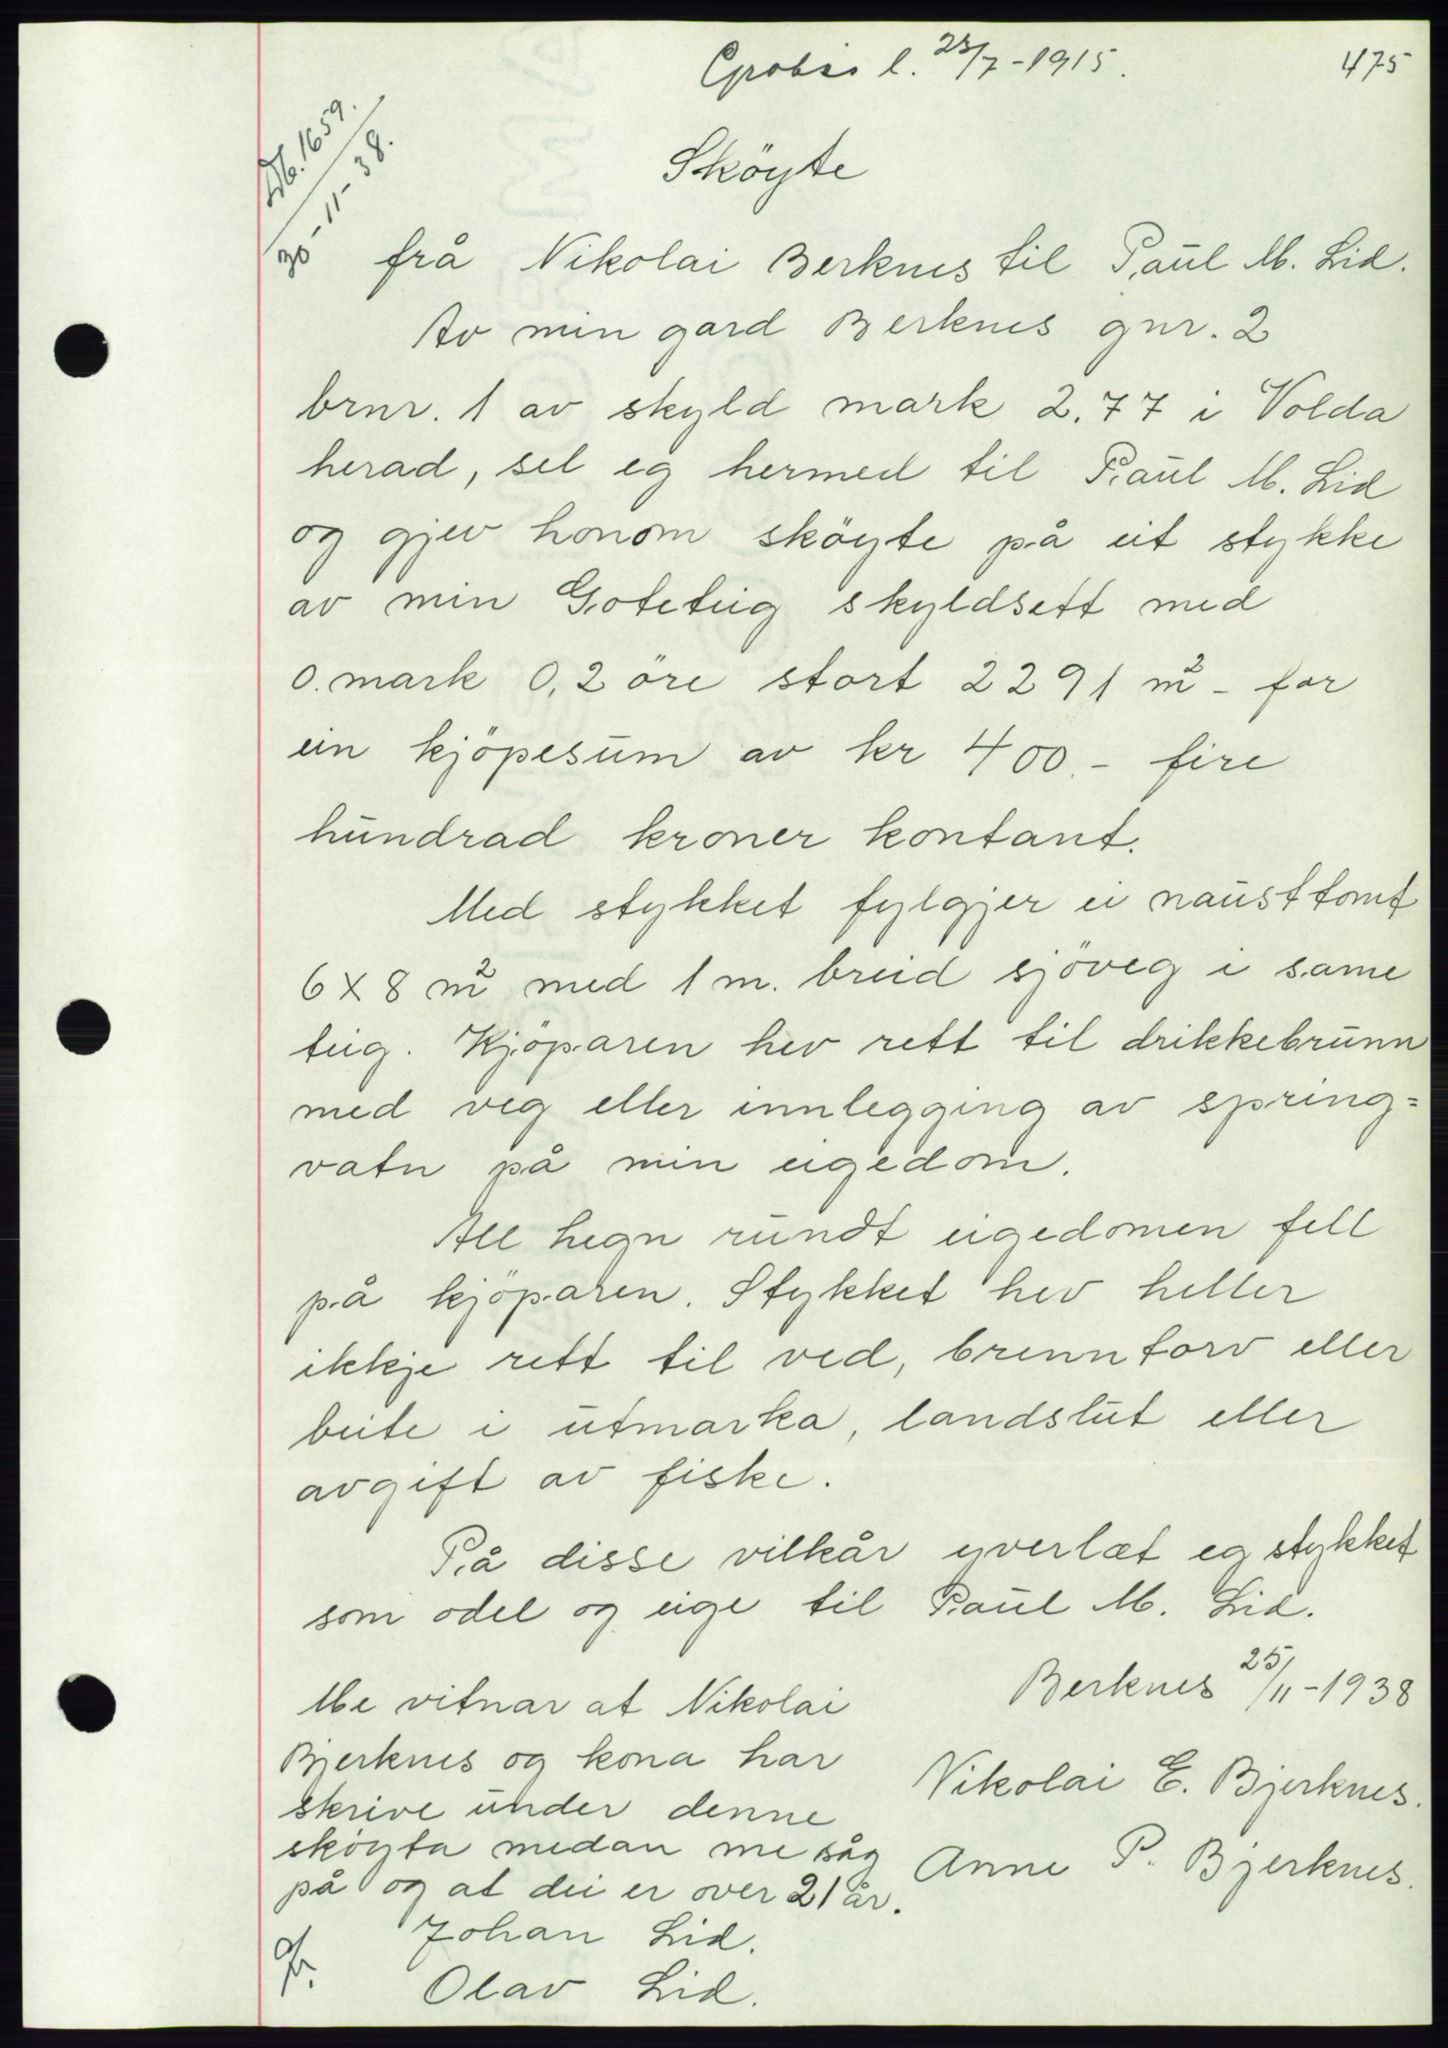 l. 23/7-1915.
475
Db. 1659.
30-11-38.
Sköyte
frå Nikolai Berknes til Paul M. Lid.
Av min gard Berknes gnr. 2
brnr. 1 av skyld mark 2.77 i Volda
herad, sel eg hermed til Paul M. Lid
og gjev honom sköyte på eit stykke
av min Goteteig skyldsett med
0. mark 0,2 öre stort 2291 m² - for
ein kjöpesum av kr 400.- fire
hundrad kroner kontant.
Med stykket fylgjer ei nausttomt
6 X 8 m² med 1 m. breid sjöveg i same
teig. Kjöparen hev rett til drikkebrunn
med veg eller innlegging av spring=
vatn på min eigedom.
All hegn rundt eigedomen fell
på kjöparen. Stykket hev heller
ikkje rett til ved, brenntorv eller
beite i utmarka, landslut eller
avgift av fiske.
På disse vilkår yverlæt eg stykket
som odel og eige til Paul M. Lid.
Berknes 25/11-1938
Nikolai E. Bjerknes.
Anne P. Bjerknes.
Me vitnar at Nikolai
Bjerknes og kona har
skrive under denne
sköyta medan me såg
på og at dei er over 21 år.
Johan Lid.
Olav Lid.